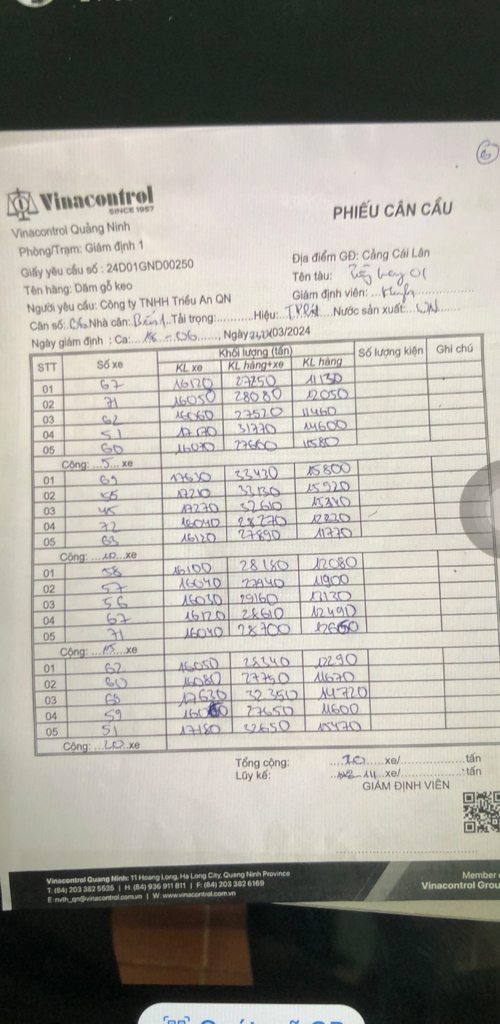 6
Vinacontrol
SINCE 1957
PHIẾU CÂN CẨU
Vinacontrol Quảng Ninh
Phòng/Trạm: Giám định 1
Giấy yêu cầu số : 24D01GND00250
Tên hàng: Dăm gỗ keo
Người yêu cầu: Công ty TNHH Triều An QN
Địa điểm GĐ: Cảng Cái Lân
Tên tàu: 01
Giám định viên:
Cân số: Nhà cân: Tải trọng: Hiệu: Nước sản xuất:
Ngày giám định : Ca: 06, Ngày /03/2024
STT Số xe Khối lượng (tấn) Số lượng kiện Ghi chú
KL xe KL hàng+xe KL hàng
01 67 16120 27250 11130
02 71 16050 28080 12050
03 62 16060 27520 11460
04 51 17170 31770 14600
05 60 16070 27660 11580
Cộng: 5 xe
01 69 17630 33430 15800
02 55 17210 33130 15920
03 45 17270 32610 15340
04 72 16040 28270 12230
05 63 16120 27890 11770
Cộng: 10 xe
01 58 16100 28180 12080
02 57 16040 27940 11900
03 56 16030 29160 13130
04 67 16120 28610 12490
05 71 16040 28700 12660
Cộng: 15 xe
01 62 16050 28340 12290
02 60 16080 27750 11670
03 69 17630 32350 14720
04 59 27650 11600
05 51 17180 32650 15470
Cộng: 20 xe
Tổng cộng: 20 xe/ tấn
Lũy kế: xe/ tấn
GIÁM ĐỊNH VIÊN
Vinacontrol Quang Ninh: 11 Hoang Long, Ha Long City, Quang Ninh Province
T: (84) 203 382 5535 | H: (84) 936 911 811 | F: (84) 203 382 6169
E: nvth_qn@vinacontrol.com.vn | W: www.vinacontrol.com.vn
Member
Vinacontrol Grou